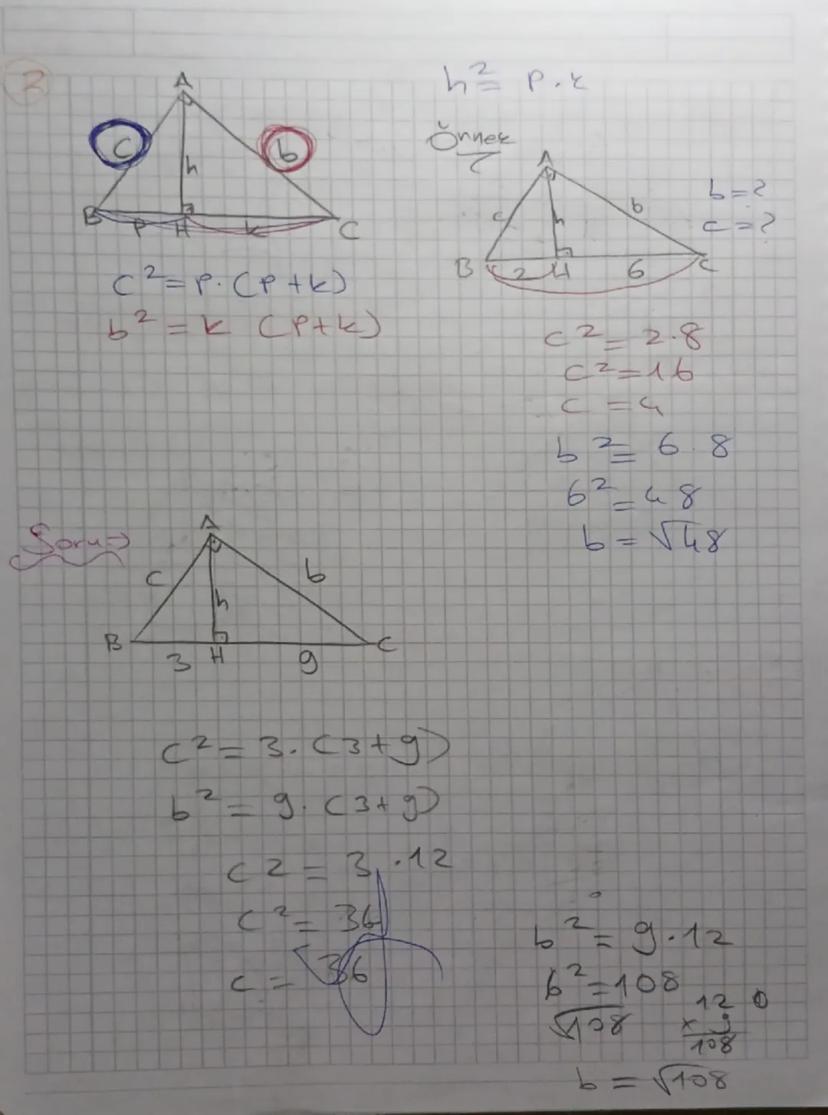 2
A
c
b
h
B
P
H
k
C
c² = p. (p+k)
b² = k (p+k)
h² = p.k
Örnek
A
c
h
b
b = ?
c = ?
B
2
H
6
C
c² = 2.8
c² = 16
c = 4
b² = 6 8
b² = 48
b = √48
Soru⇒
A
c
b
h
B
3
H
9
C
c² = 3. (3+9)
b² = 9. (3+9)
c2 = 3.12
c² = 36
c = √36
b² = 9.12
b² = 108
√108
12
x 9
108
b = √108